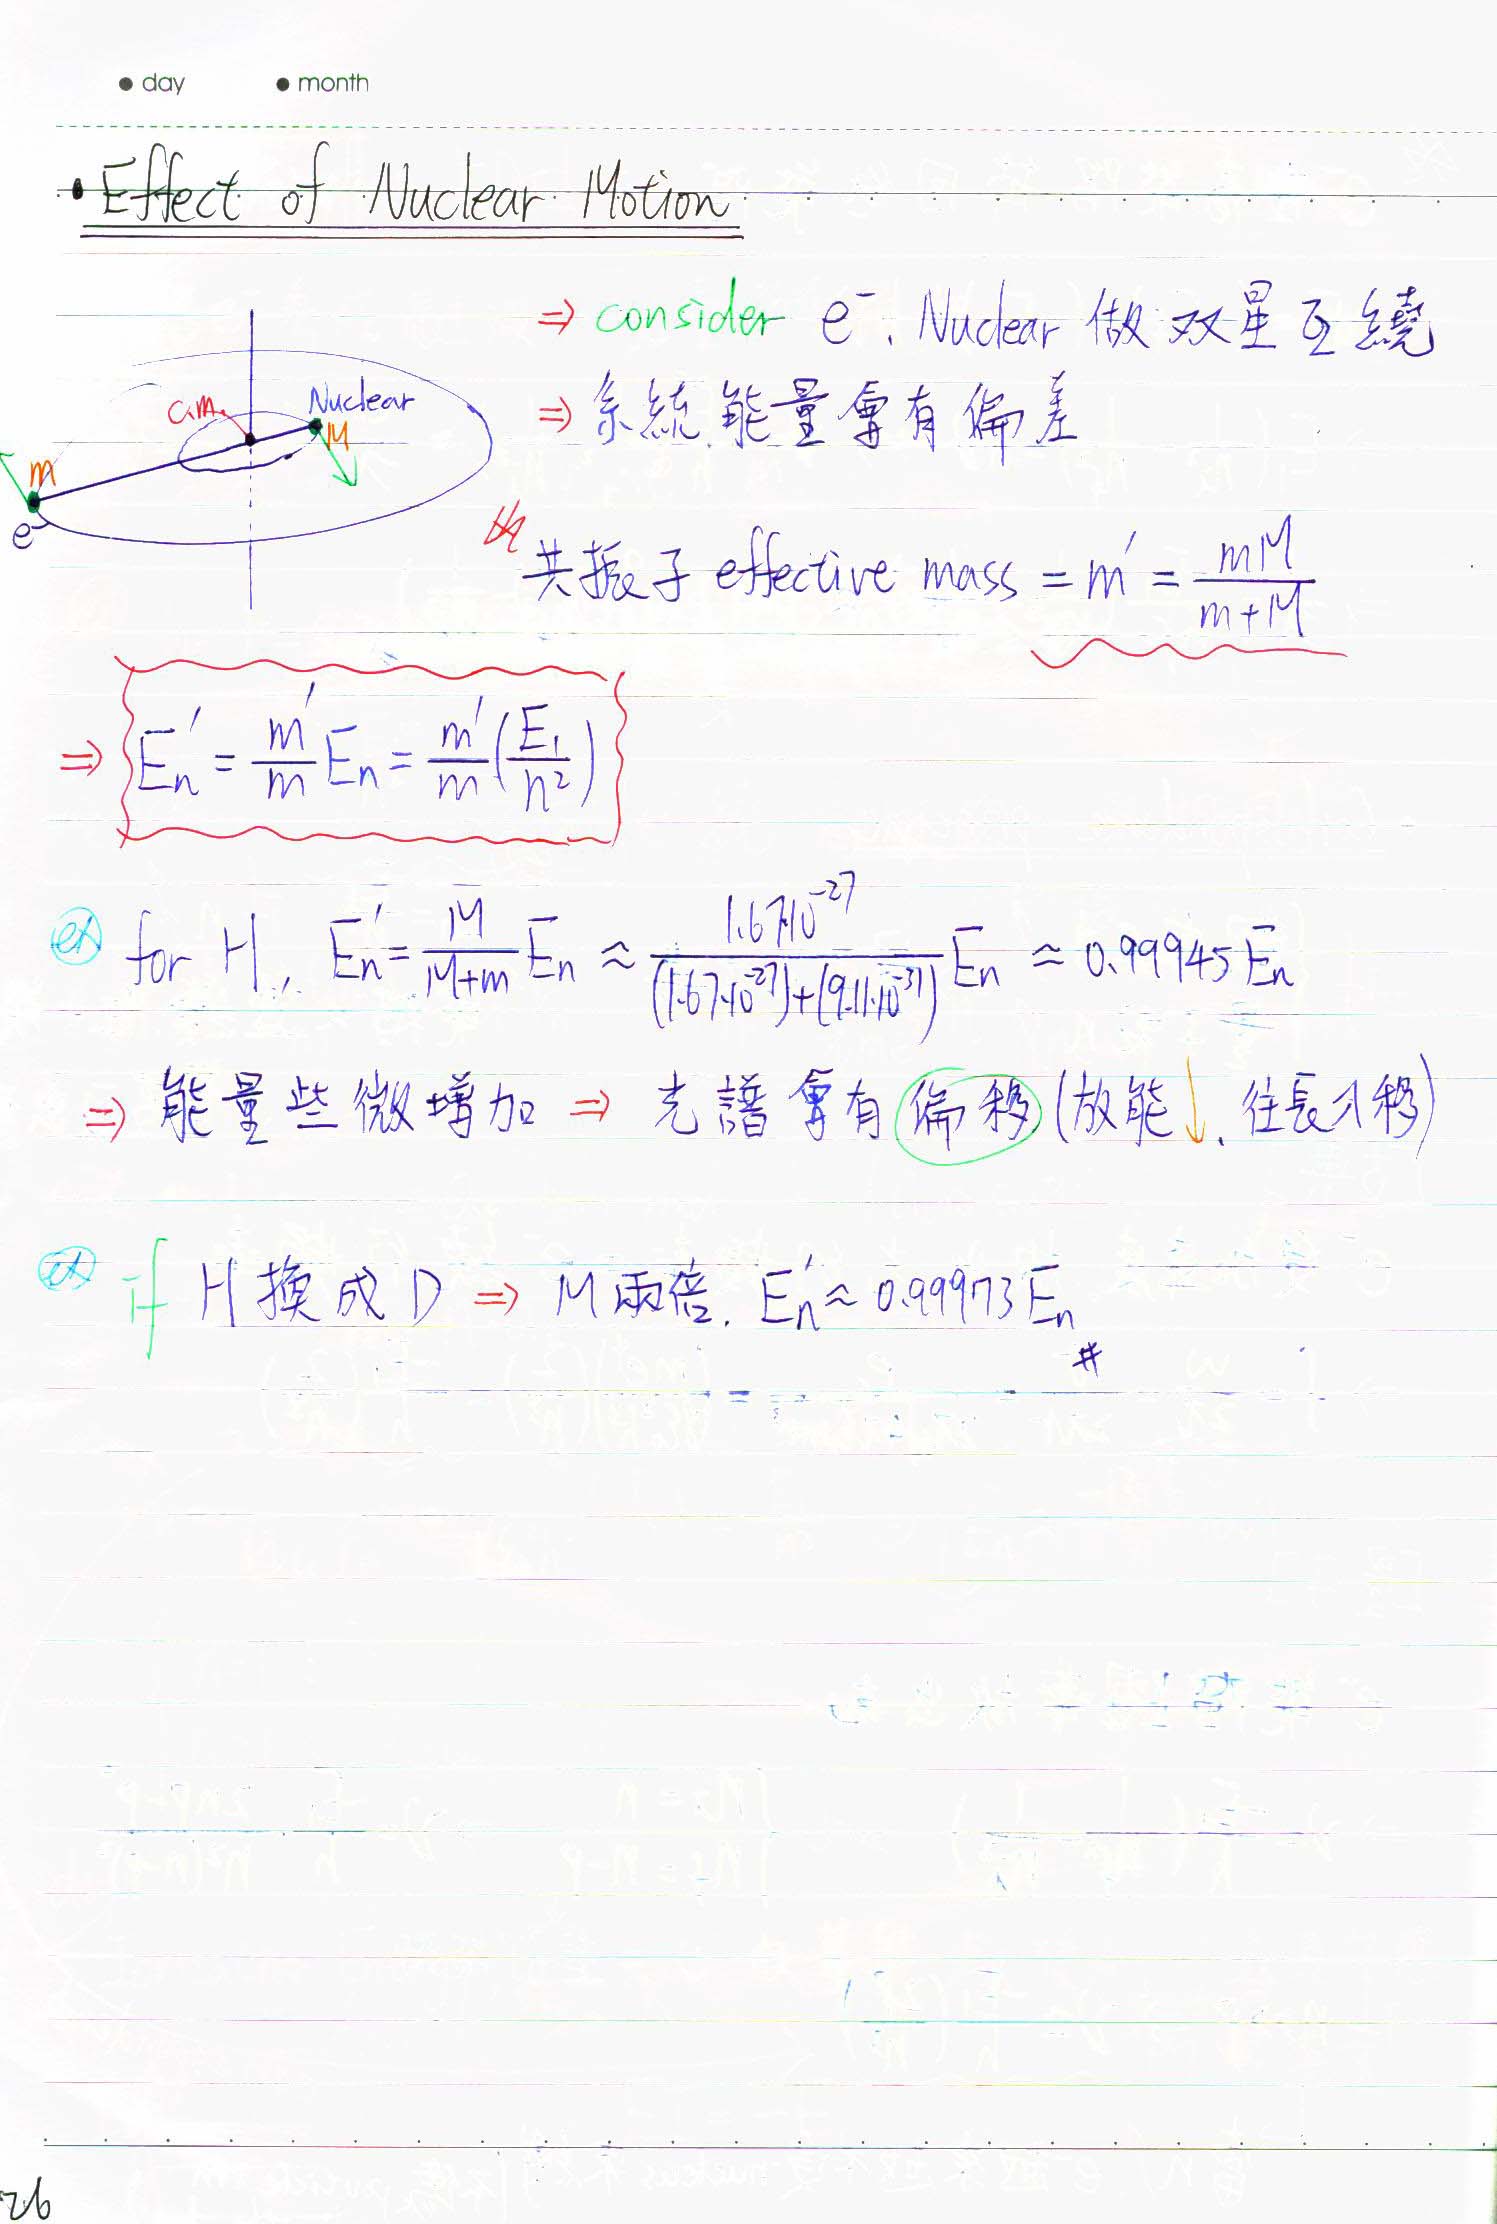 day month
Effect of Nuclear Motion
⇒ consider e⁻. Nuclear 做双星互繞
C.M. Nuclear
⇒ 系統能量會有偏差
M
m
e⁻
共振子 effective mass = m' = mM/(m+M)
⇒ En' = (m'/m) En = (m'/m)(E₁/n²)
ex for H, En' = M/(M+m) En ≈ 1.67·10⁻²⁷/((1.67·10⁻²⁷)+(9.11·10⁻³¹)) En ≈ 0.99945 En
⇒ 能量些微增加 ⇒ 光譜會有偏移(放能↓. 往長入移)
ex if H換成D ⇒ M兩倍. En' ≈ 0.99973 En #
26